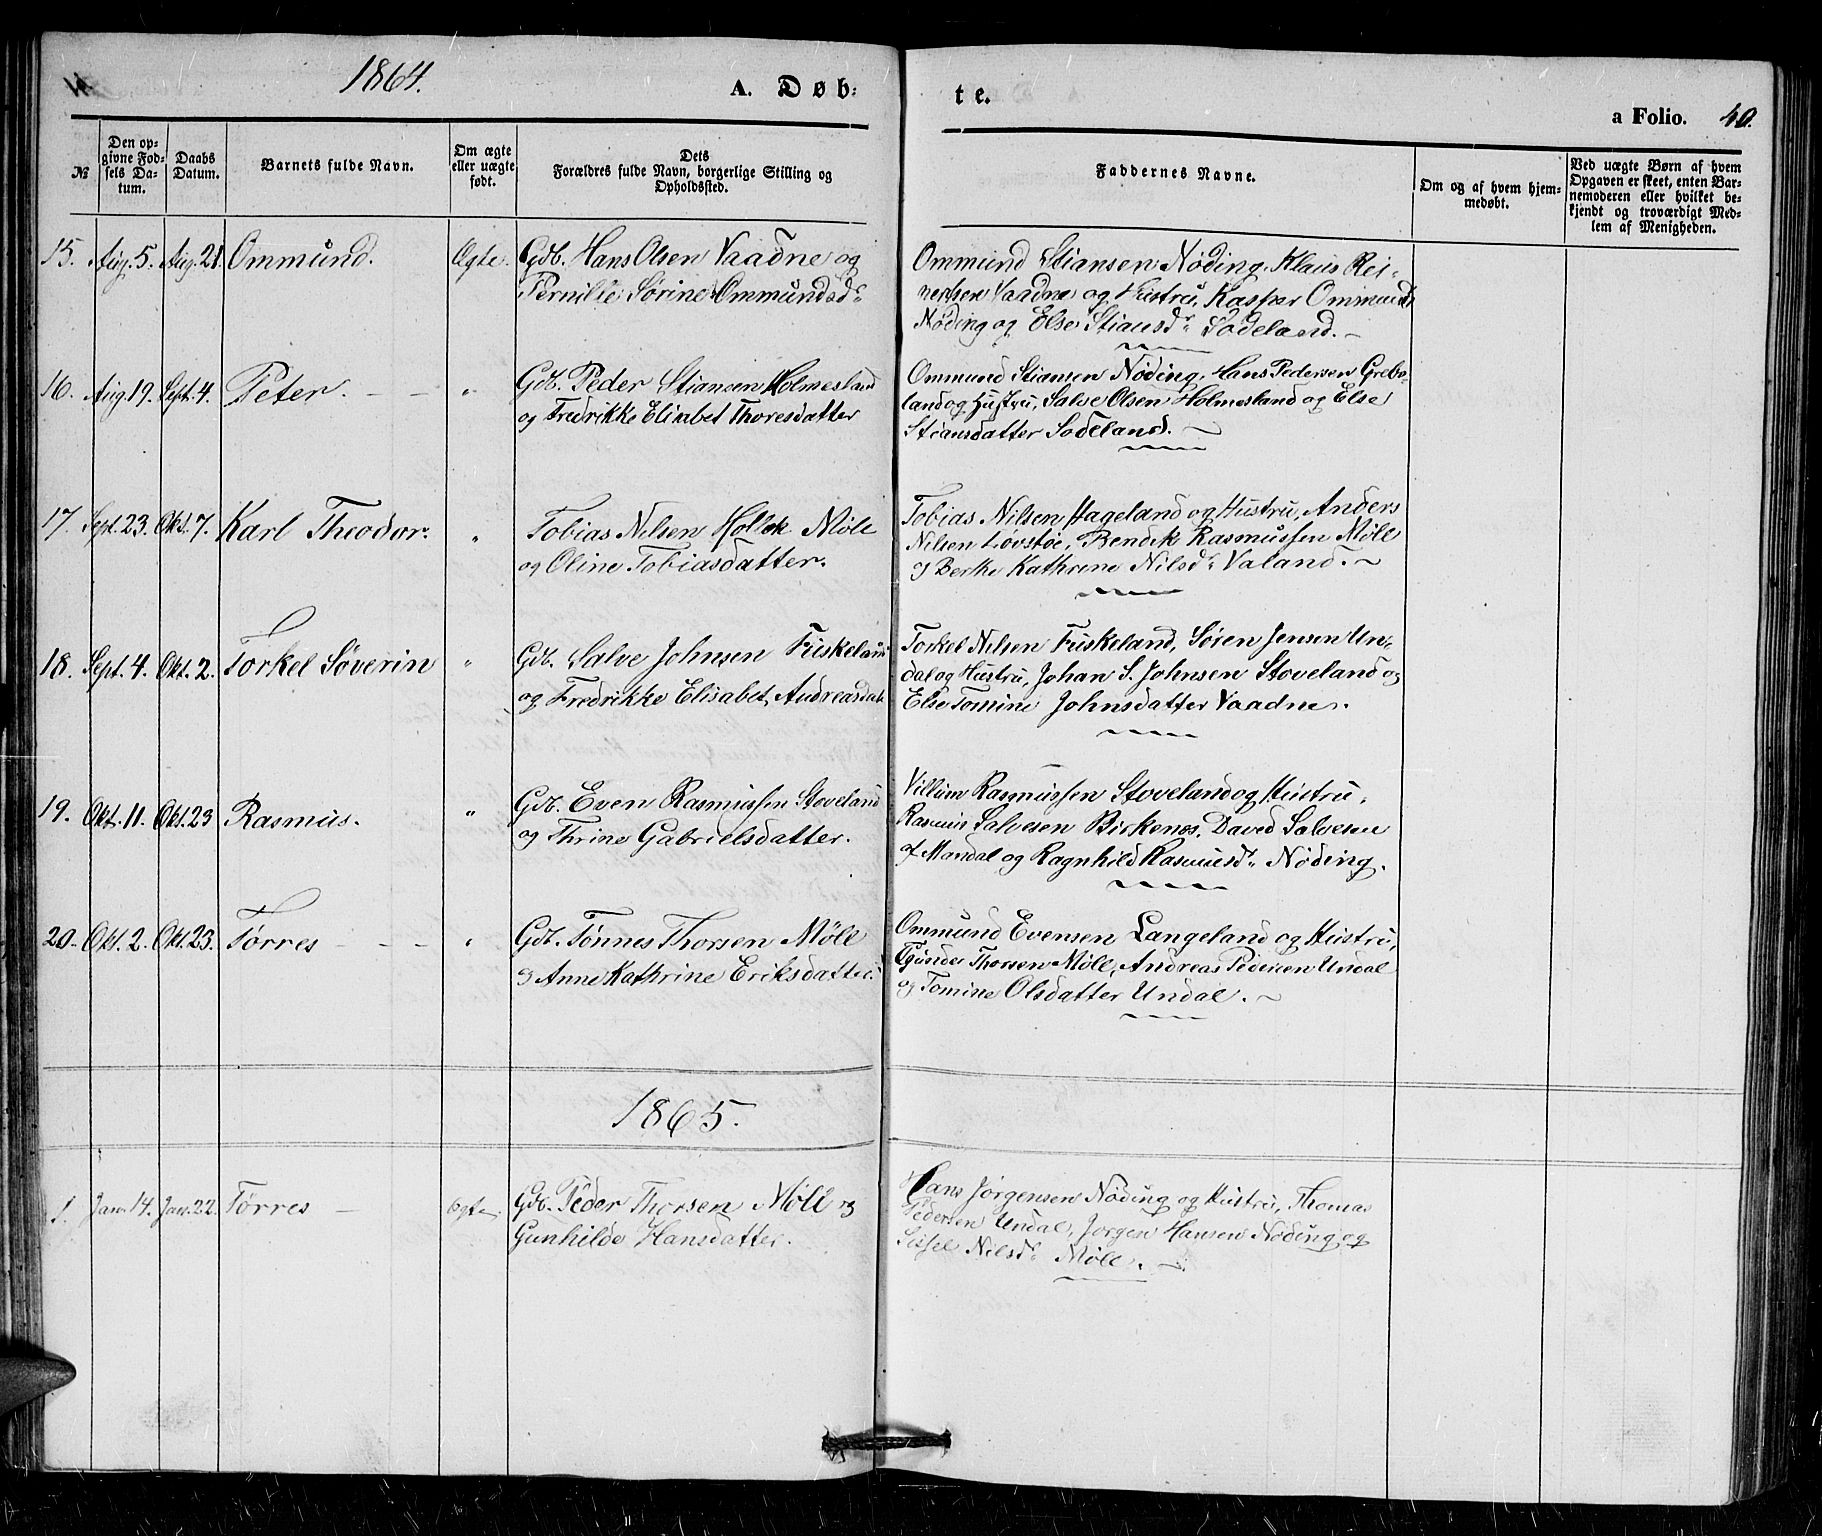 1864.
A. Døb-
te.
a Folio. 40.
№
Den op-
givne Fød-
sels Da-
tum.
Daabs
Datum.
Barnets fulde Navn.
Om ægte
eller uægte
født.
Dets
Forældres fulde Navn, borgerlige Stilling og
Opholdssted.
Faddernes Navne.
Om og af hvem hjem-
medøbt.
Ved uægte Børn af hvem
Opgaven er skeet, enten Bar-
nemoderen eller hvilket be-
kjendt og troværdigt Med-
lem af Menigheden.
15. Aug. 5. Aug. 21. Ommund. Ægte. Gdb. Hans Olsen Vaadne og
Pernille Sørine Ommundsd.
Ommund Stiansen Nøding, Klaus Rei-
nertsen Vaadne og Hustru, Kasper Ommunds
Nøding og Else Stiansd. Sodeland.
16. Aug. 19. Sept. 4. Peter. „ Gdb. Peder Stiansen Holmesland
og Fredrikke Elisabet Thoresdatter
Ommund Stiansen Nøding, Hans Pedersen Grebs-
land og Hustru, Salve Olsen Holmesland og Else
Stiansdatter Sodeland.
17. Sept. 23. Okt. 7. Karl Theodor. „ Tobias Nilsen Møll
og Oline Tobiasdatter.
Tobias Nilsen Hageland og Hustru, Anders
Nilsen Løvstøe, Bendik Rasmussen Møll
og Berte Kathrine Nilsd. Valand.
18. Sept. 4. Okt. 2. Torkel Søverin „ Gdb. Salve Johnsen Fuskeland
og Fredrikke Elisabet Andreasdatt
Torkel Nilsen Fuskeland, Søren Jensen Un-
dal og Hustru, Johan S. Johnsen Stoveland og
Else Tomine Johnsdatter Vaadne.
19. Okt. 11. Okt. 23 Rasmus. „ Gdb. Even Rasmussen Stoveland
og Thrine Gabrielsdatter.
Villum Rasmussen Stoveland og Hustru,
Rasmus Salvesen Birkenes, David Salvesen
af Mandal og Ragnhild Rasmusd. Nøding.
20. Okt. 2. Okt. 23. Tørres „ Gdb. Tønnes Thorsen Møll
og Anne Kathrine Eriksdatter.
Ommund Evensen Langeland og Hustru,
Gunder Thorsen Møll, Andreas Pedersen Undal
og Tomine Olsdatter Undal.
1865.
1. Jan. 14. Jan. 22. Tørres Ægte. Gdb. Peder Thorsen Møll og
Gunhilde Hansdatter.
Hans Jørgensen Nøding og Hustru, Thomas
Pedersen Undal, Jørgen Hansen Nøding og
Sissel Nilsd. Møll.